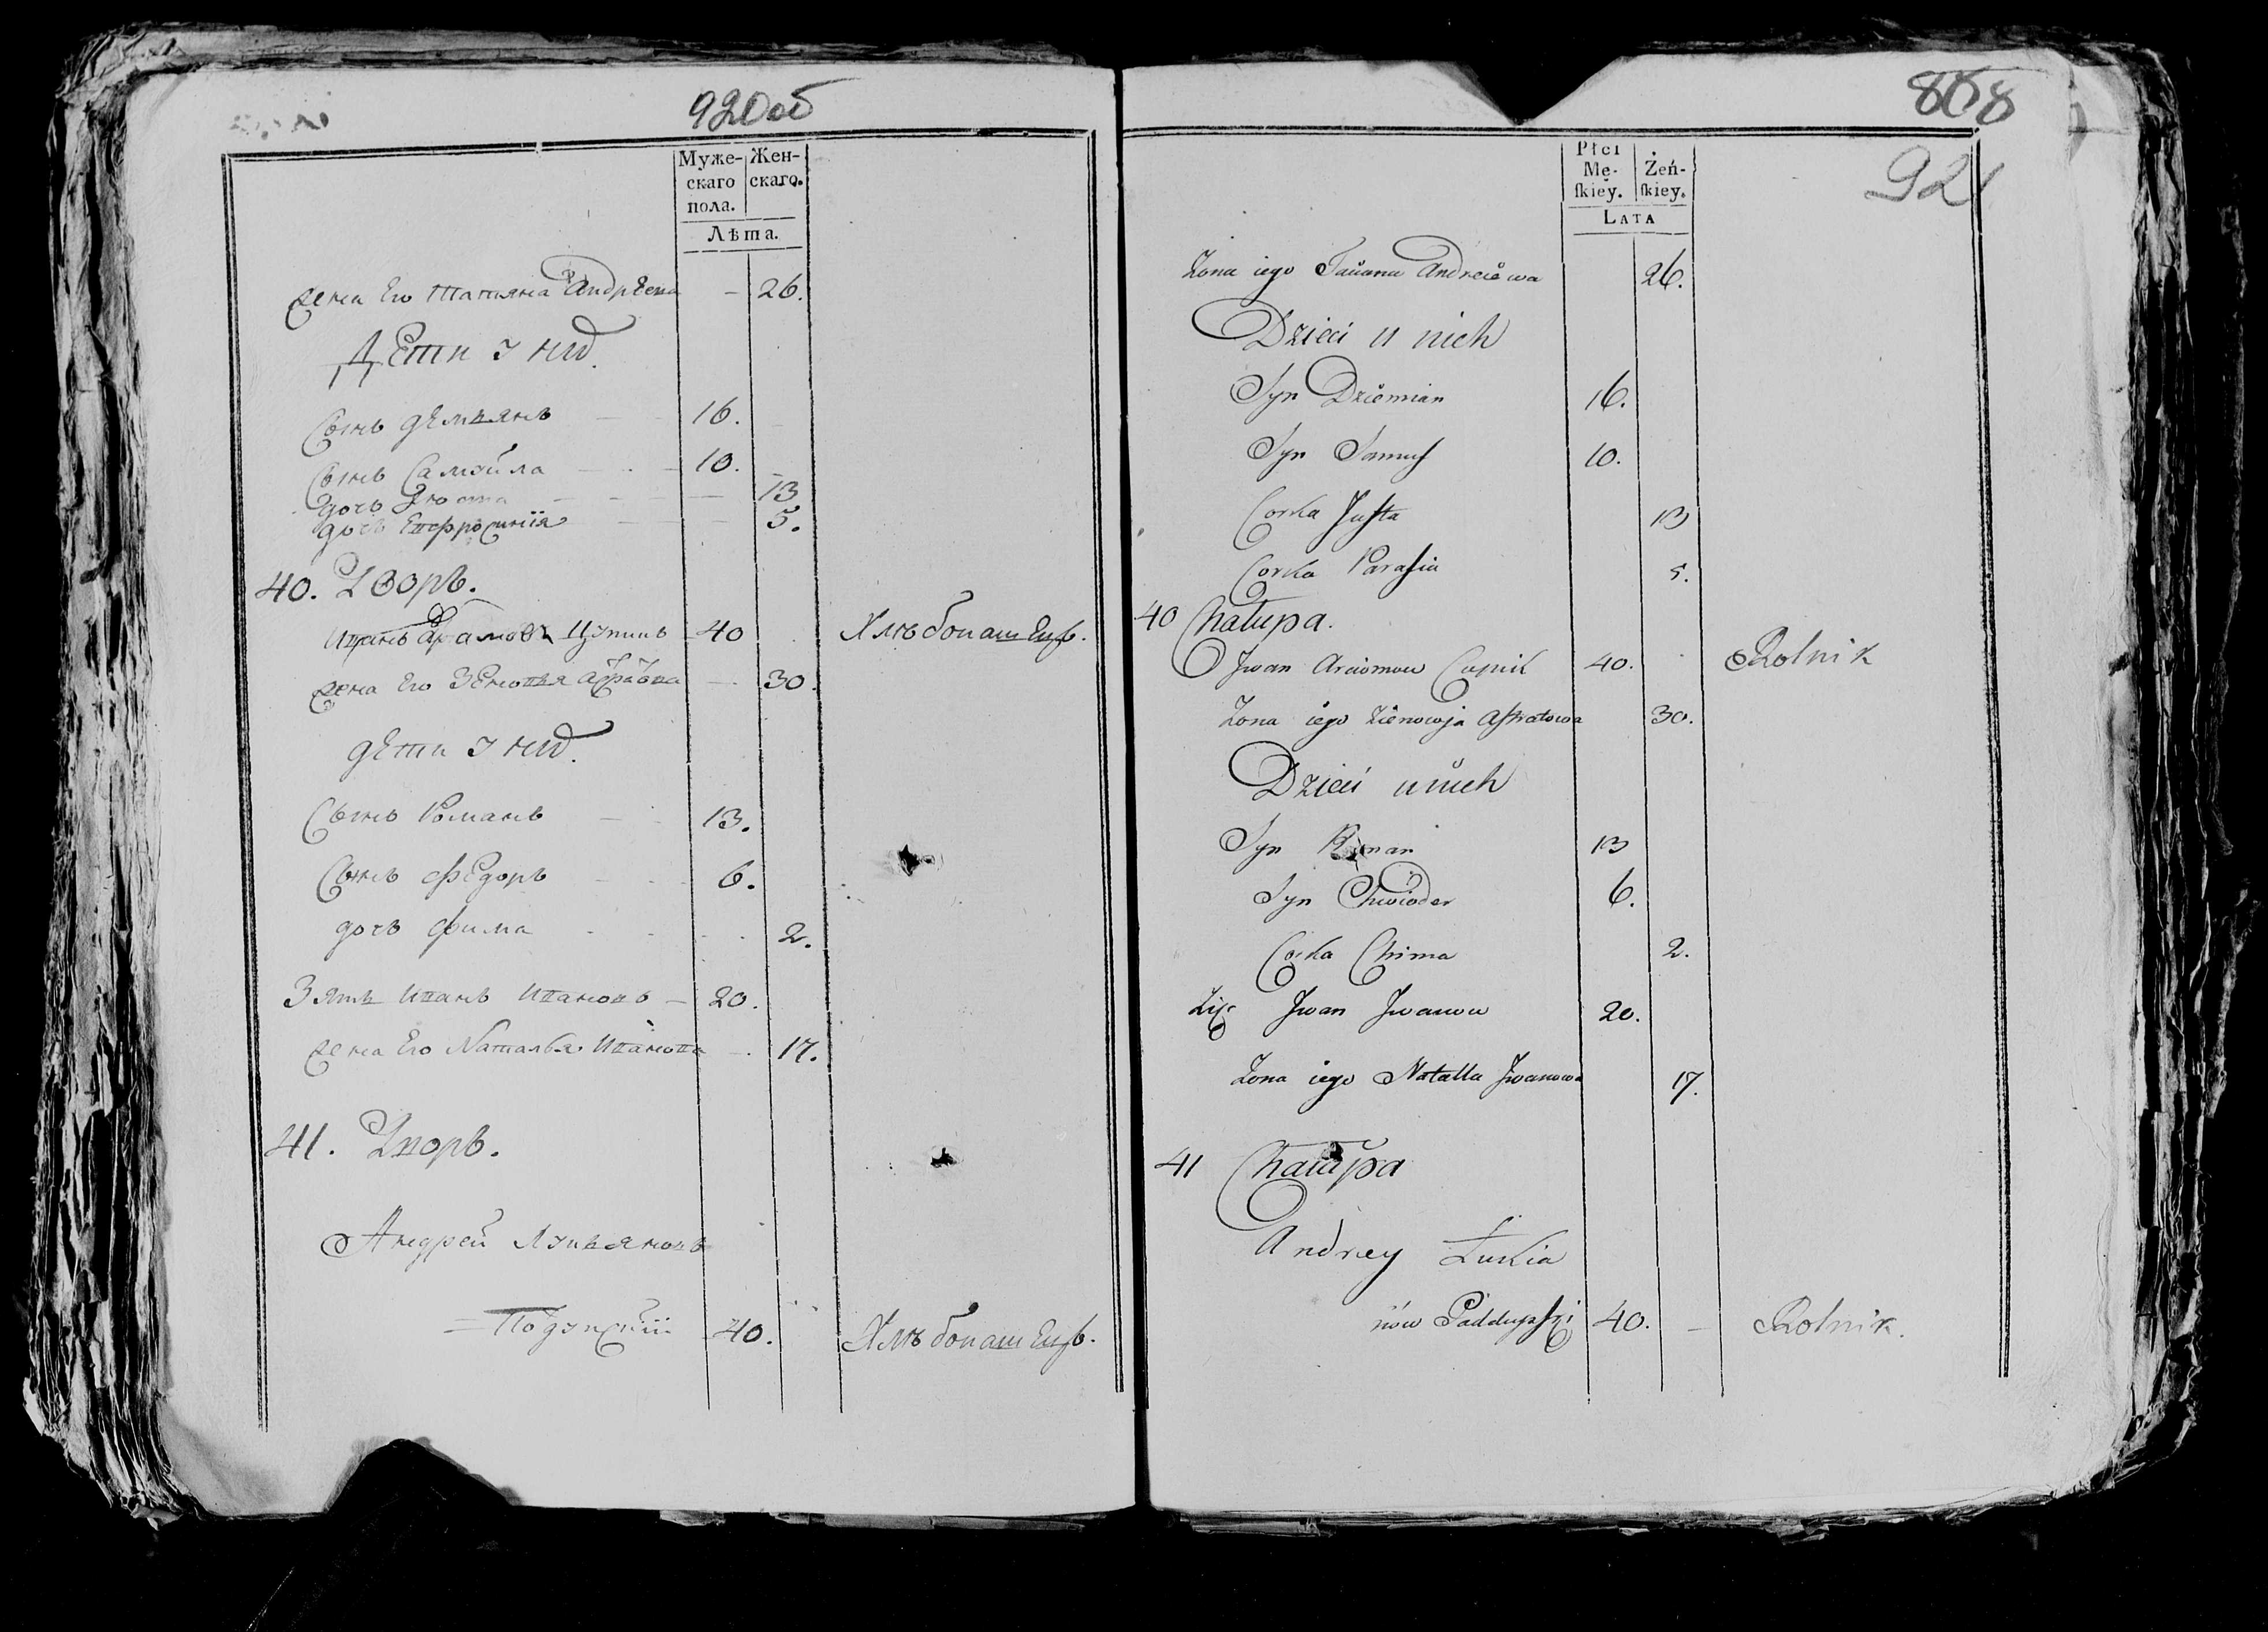 920об
Муже- Жен-
скаго скаго.
пола.
Лѣта.
жена Его Татіяна Андрѣева — 26.
Дети у нид.
Сынъ Демьянъ 16.
Сынъ Самойла 10.
дочь Юста 13
дочь Ефросинія 5.
40. Дворъ.
Иванъ Артамовъ Цупикъ 40 Хлѣбопашецъ.
жена Его Зеновья 30.
дети у нид.
Сынъ Романъ 13.
Сынъ Федоръ 6.
дочь Фима 2.
Зять Иванъ Ивановъ — 20.
жена Его Наталья Иванова 17.
41. Дворъ.
Андрей Лукьяновъ
= 40. Хлѣбопашецъ.
868
921
Płci
Mę- Żeń-
ſkiey. ſkiey.
LATA
Zona iego Taciana Andreiewa 26.
Dzieci u nich
Syn Dziemian 16.
Syn Samuś 10.
Corka Juſta 13
Corka Paraſia 5.
40 Chałupa.
Jwan Arciomow Cupik 40. Rolnik
Zona iego Zienowja Aſtratowa 30.
Dzieci u nich
Syn Roman 13
Syn Chwioder 6.
Corka Chima 2.
Zięć Jwan Jwanow 20.
Zona iego Natalla Jwanowa 17.
41 Chałupa
Andrey Łukia
nów 40. — Rolnik.